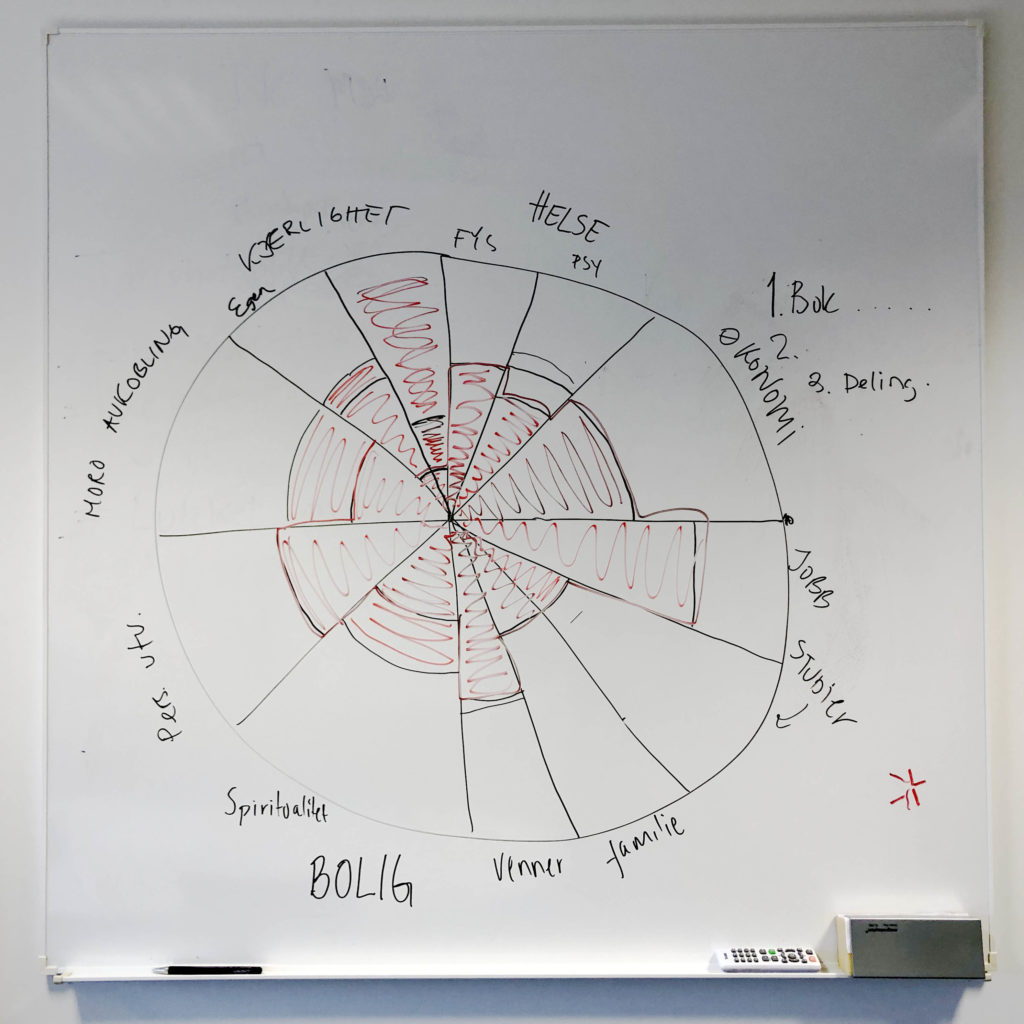 KJÆRLIGHET
Egen
HELSE
FYS
PSY
ØKONOMI
1. Bok .....
2.
3. Deling.
JOBB
STUDIER
familie
Venner
BOLIG
Spiritualitet
pers. utv.
MORO AVKOBLING